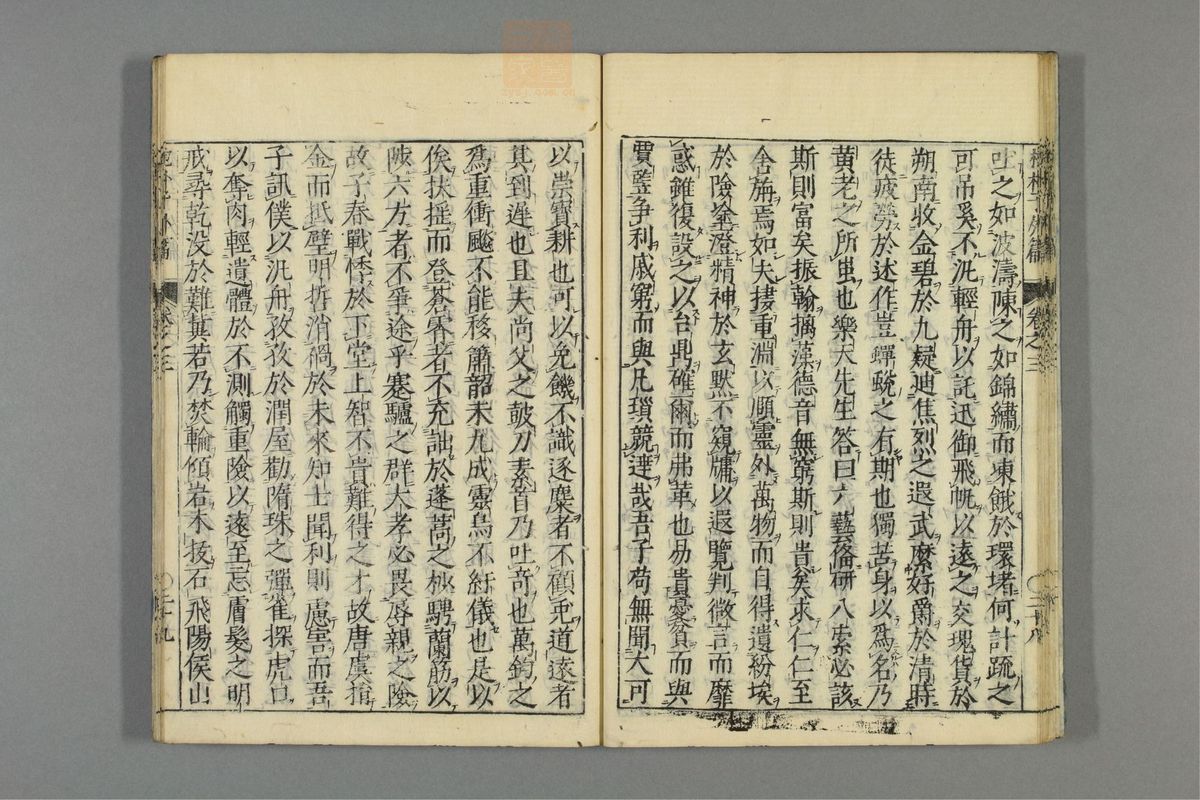 吐之如波濤陳之如錦繡而凍餓於環堵何計䟽之
可吊奚不汎輕舟以託迅御飛帆以遠之交瑰貨於
朔南收金碧於九疑迪焦烈之遐武縻好爵於清時
徒疲勞於述作豈蟬蛻之有期也獨苦身以爲名乃
黃老之所蚩也樂天先生答曰六藝俻研八索必該
斯則富矣振翰摛藻德音無窮斯則貴矣求仁仁至
舍旃焉如夫捿重淵以頤靈外萬物而自得遺紛埃
於險塗澄精神於玄默不窺牖以遐覽判微言而靡
惑雖復設之以台鼎確爾而弗革也曷貴憂貧而與
賈豎争利戚窮而與凡瑣競達哉吾子苟無聞大可
卷之三
二十八
以崇寶耕也可以免饑不識逐麋者不顧兎道遠者
其到遲也且夫尚父之鼓刀素首乃吐竒也萬鈞之
爲重衝飈不能移簫韶未九成靈烏不紆儀也是以
俟扶揺而登蒼霄者不充詘於蓬蒿之杪騁蘭筋以
陟六方者不爭途乎蹇驢之群大孝必畏辱親之險
故子春戰悸於下堂上智不貴難得之才故唐虞捐
金而抵璧明哲消禍於未來知士聞利則慮害而吾
子訊僕以汎舟孜孜於潤屋勸隋珠之彈雀探虎口
以奪肉輕遺體於不測觸重險以遠至忘膚髮之明
戒尋乾没於難冀若乃焚輪傾岩木拔石飛陽侯山
卷之三
二十九